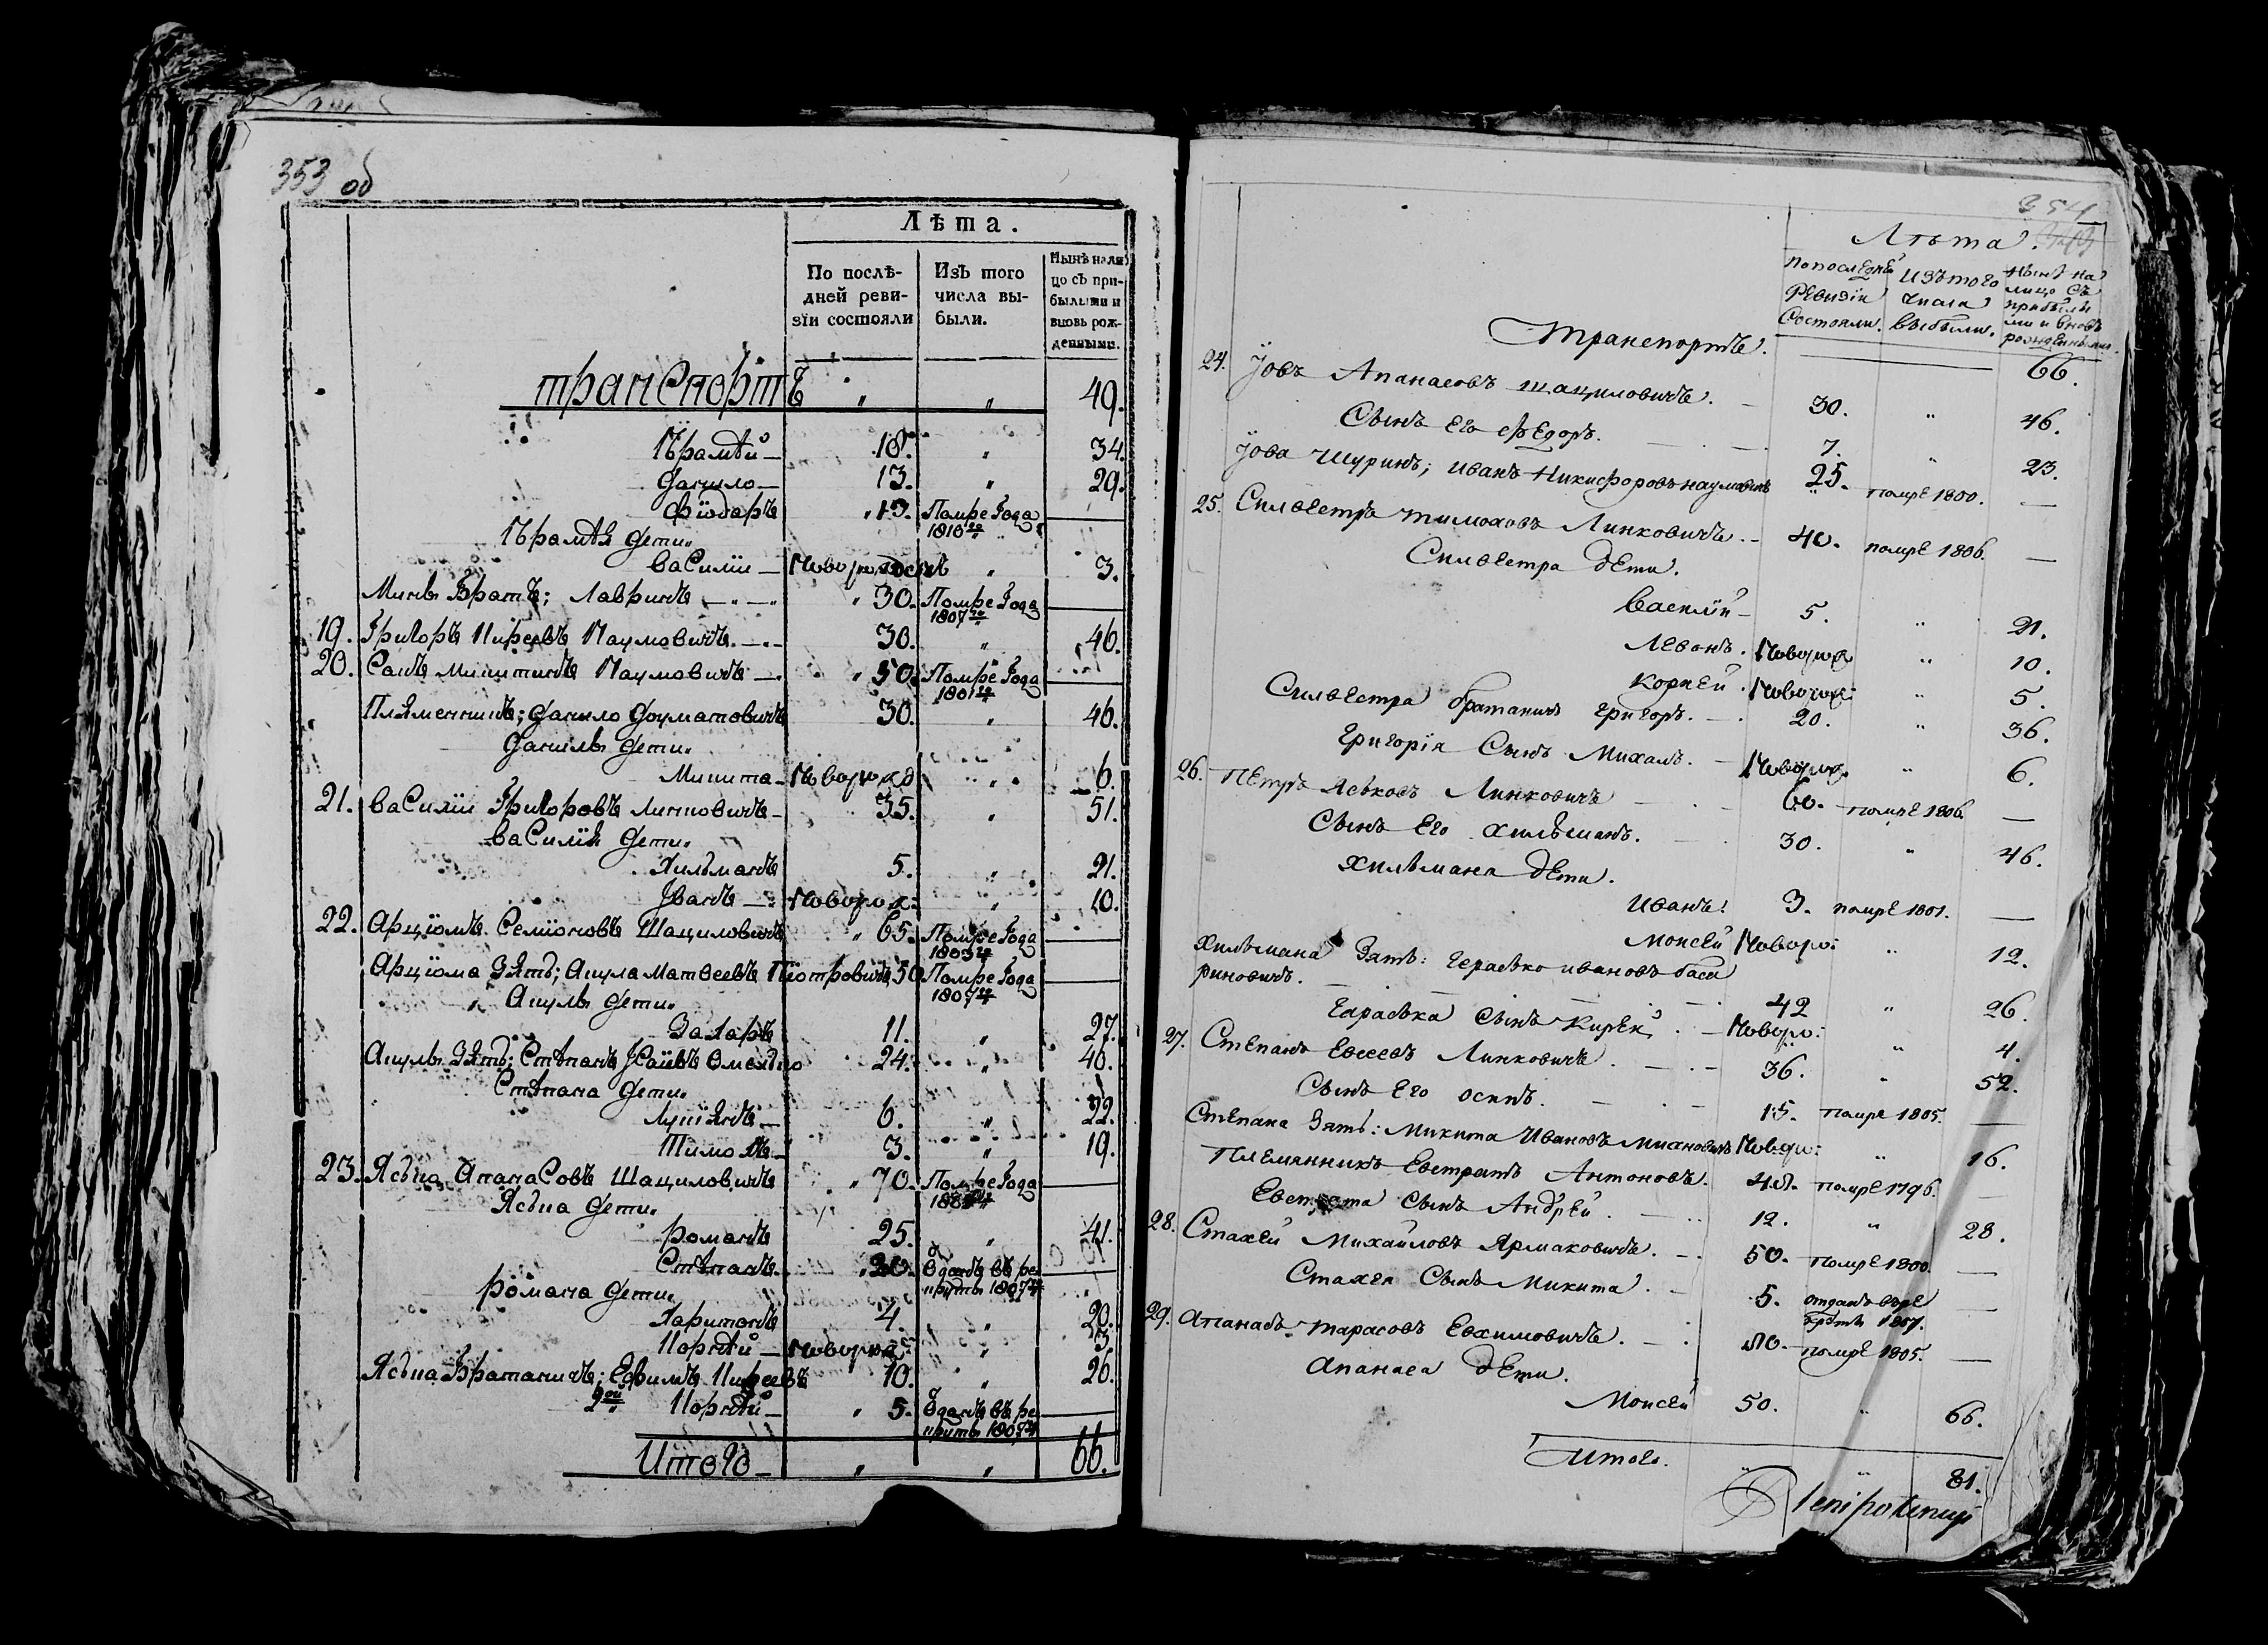 353 об
Лѣта.
По послѣ-
дней реви-
зїи состояли
Изъ того
числа вы-
были.
Нынѣ нали
цо съ при-
былыми и
вновь рож-
денными.
транспортъ " " 49.
18. " 34.
Данило — 13. " 29.
Фїодаръ " 13. Помре Года
1810го
дети
Василїи — Новорожденъ " 3.
братъ; Лавринъ — " — " " 30. Помре Года
1807го
19. Григоръ Наумовичъ. — 30. " 46.
20. Наумовичъ — " 50. Помре Года
1801го
Данило 30. " 46.
дети
Микита — Новорожд " 6.
21. Василїи Григоровъ 35. " 51.
Василїя дети
Хильманъ 5. " 21.
Иванъ — Новорож: " 10.
22. Арцїомъ Семїоновъ Шациловичъ " 65. Помре Года
Арцїома зять; Матвеевъ Пїотровичъ 50 Помре Года
1807го
дети
Захаръ 11. " 27.
зять; Стѣпанъ 24. " 40.
Стѣпана дети
6. " 22.
3. " 19.
23. Апанасовъ Шациловичъ " 70. Помре Года
дети
Романъ 25. " 41.
Стѣпанъ. " 20. Оданъ въ ре
круты 1807го
Романа дети
Харитонъ 4. " 20.
Новорож " 3
Братаничъ; Ефимъ 10. " 26.
2ой " 5. Оданъ въ ре
круты 1807го
Итого — " " 66.
354
Лѣта.
По последней
Ревизїи
Состояли.
Изъ того
числа
выбыли.
Нынѣ на
лицо съ
прибылы
ми и вновь
рожденными.
Транспортъ. 66.
24. Іовъ Апанасовъ Шациловичъ. — 30. " 46.
Сынъ Его Федоръ. 7. " 23.
Іова Шуринъ; Иванъ Никифоровъ Наумовичъ 25. помре 1800. —
25. Сильвестръ Тимоховъ Линковичъ. — 40. помре 1806. —
Сильвестра дети.
Василїй — 5. " 21.
Левонъ. Новорож " 10.
Корней. Новорож: " 5.
Сильвестра братаничъ Григоръ. — 20. " 36.
Григорїя Сынъ Михалъ. — Новорож. " 6.
26. Петръ Линковичъ — 60. помре 1806. —
Сынъ Его Хильманъ. 30. " 46.
Хильмана дети.
Иванъ. 3. помре 1801. —
Моисей Новоро: " 12.
Хильмана Зять: Герасько Ивановъ баса
риновичъ. 42 " 26.
Гараська Сынъ — Новоро: " 4.
27. Степанъ Евсеевъ Линковичъ. — 36. " 52.
Сынъ Его осипъ. — 15. помре 1805. —
Степана Зять: Микита Ивановъ Новоро: " 16.
Племянникъ Евстратъ Антоновъ. 40. помре 1796. —
Евстрата Сынъ Андрей. — 12. " 28.
28. Стахей Михайловъ Ярмаковичъ. — 50. помре 1800. —
Стахея Сынъ Микита. — 5. отданъ въ ре
круты 1807. —
29. Апанасъ Тарасовъ Евхимовичъ. — 80. помре 1805. —
Апанаса дети.
Моисей 50. " 66.
Итого. " " 81.